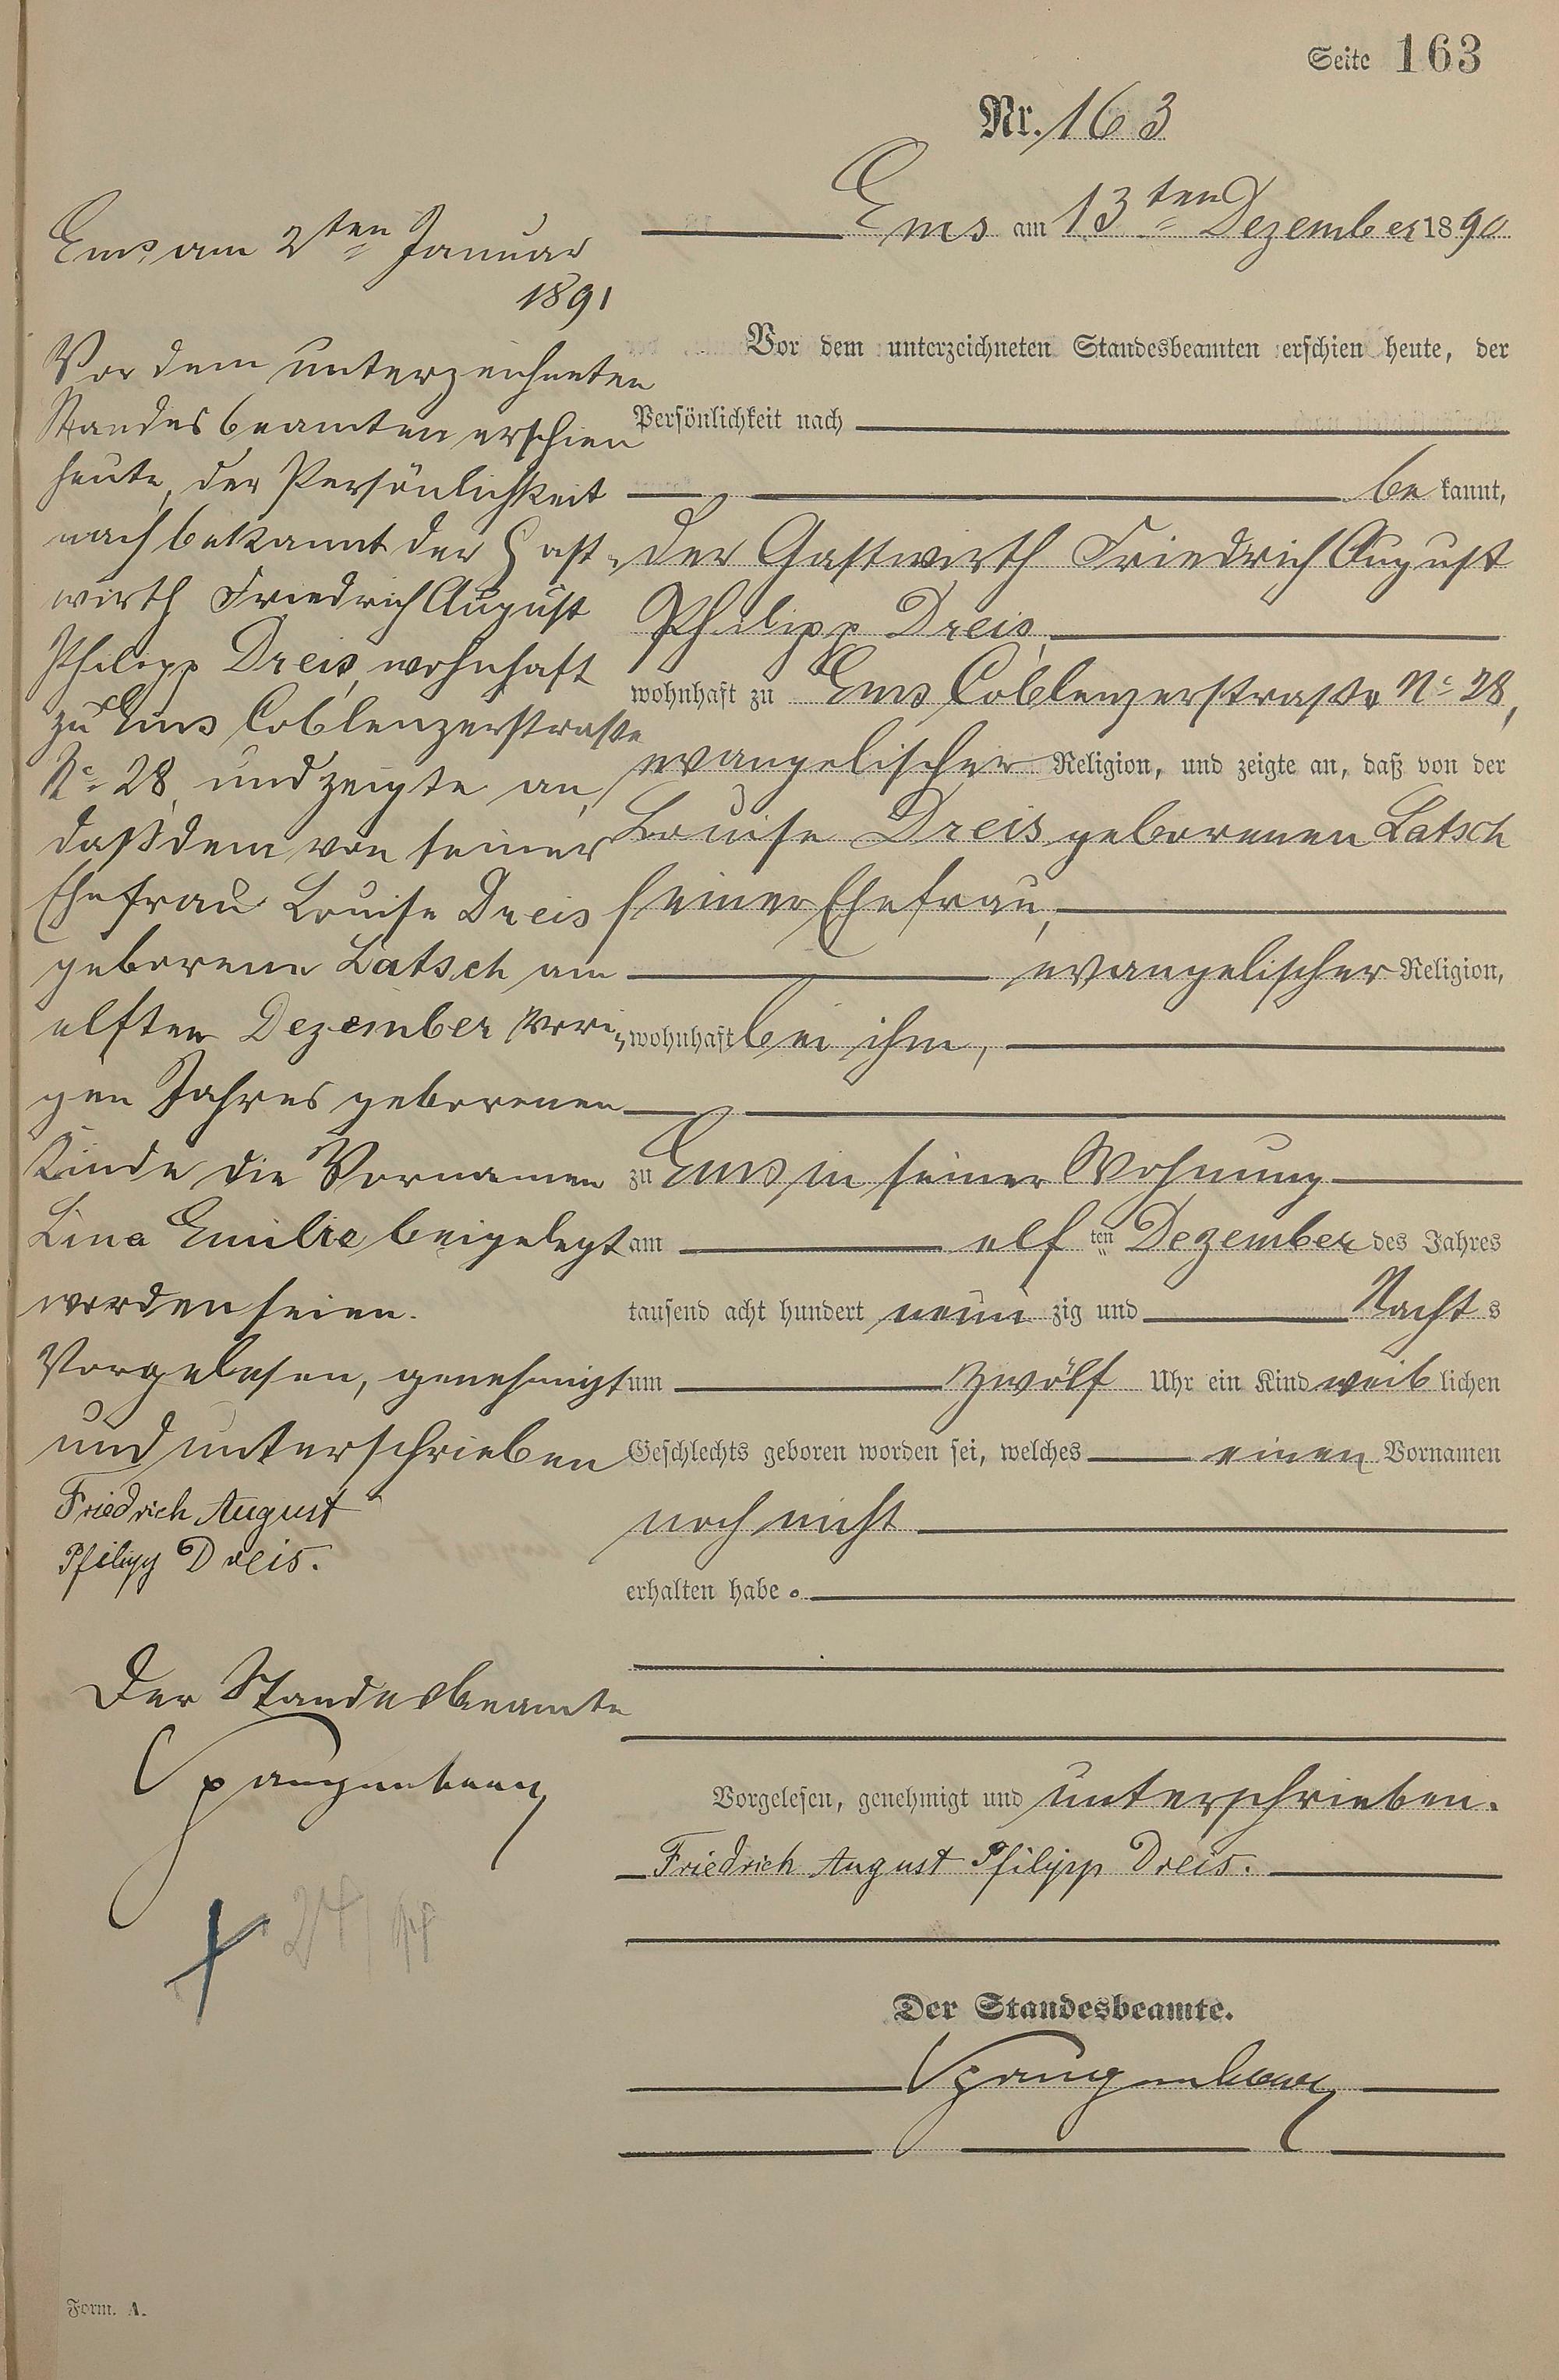 Seite 163
Nr. 163
Ems am 13ten Dezember 1890
Vor dem unterzeichneten Standesbeamten erschien heute, der
Persönlichkeit nach
be kannt,
der Gastwirth Friedrich August
Philipp Dreis,
wohnhaft zu Ems Coblenzerstraße No 28,
evangelischer Religion, und zeigte an, daß von der
Louise Dreis geborenen Latsch
seiner Ehefrau,
evangelischer Religion,
wohnhaft bei ihm,
zu Ems in seiner Wohnung
am elf ten Dezember des Jahres
tausend acht hundert neun zig und Nacht s
um zwölf Uhr ein Kind weib lichen
Geschlechts geboren worden sei, welches einen Vornamen
noch nicht
erhalten habe.
Vorgelesen, genehmigt und unterschrieben.
Friedrich August Philipp Dreis.
Der Standesbeamte.
Spangenberg
Ems am 2ten Januar
1891
Vor dem unterzeichneten
Standesbeamten erschien
heute, der Persönlichkeit
nach bekannt der Gast-
wirth Friedrich August
Philipp Dreis, wohnhaft
zu Ems Coblenzerstraße
No 28, und zeigte an,
daß dem von seiner
Ehefrau Louise Dreis
geborene Latsch am
elften Dezember vori-
gen Jahres geborenen
Kinde die Vornamen
Lina Emilie beigelegt
worden seien.
Vorgelesen, genehmigt
und unterschrieben
Friedrich August
Philipp Dreis.
Der Standesbeamte
Spangenberg
Form. A.